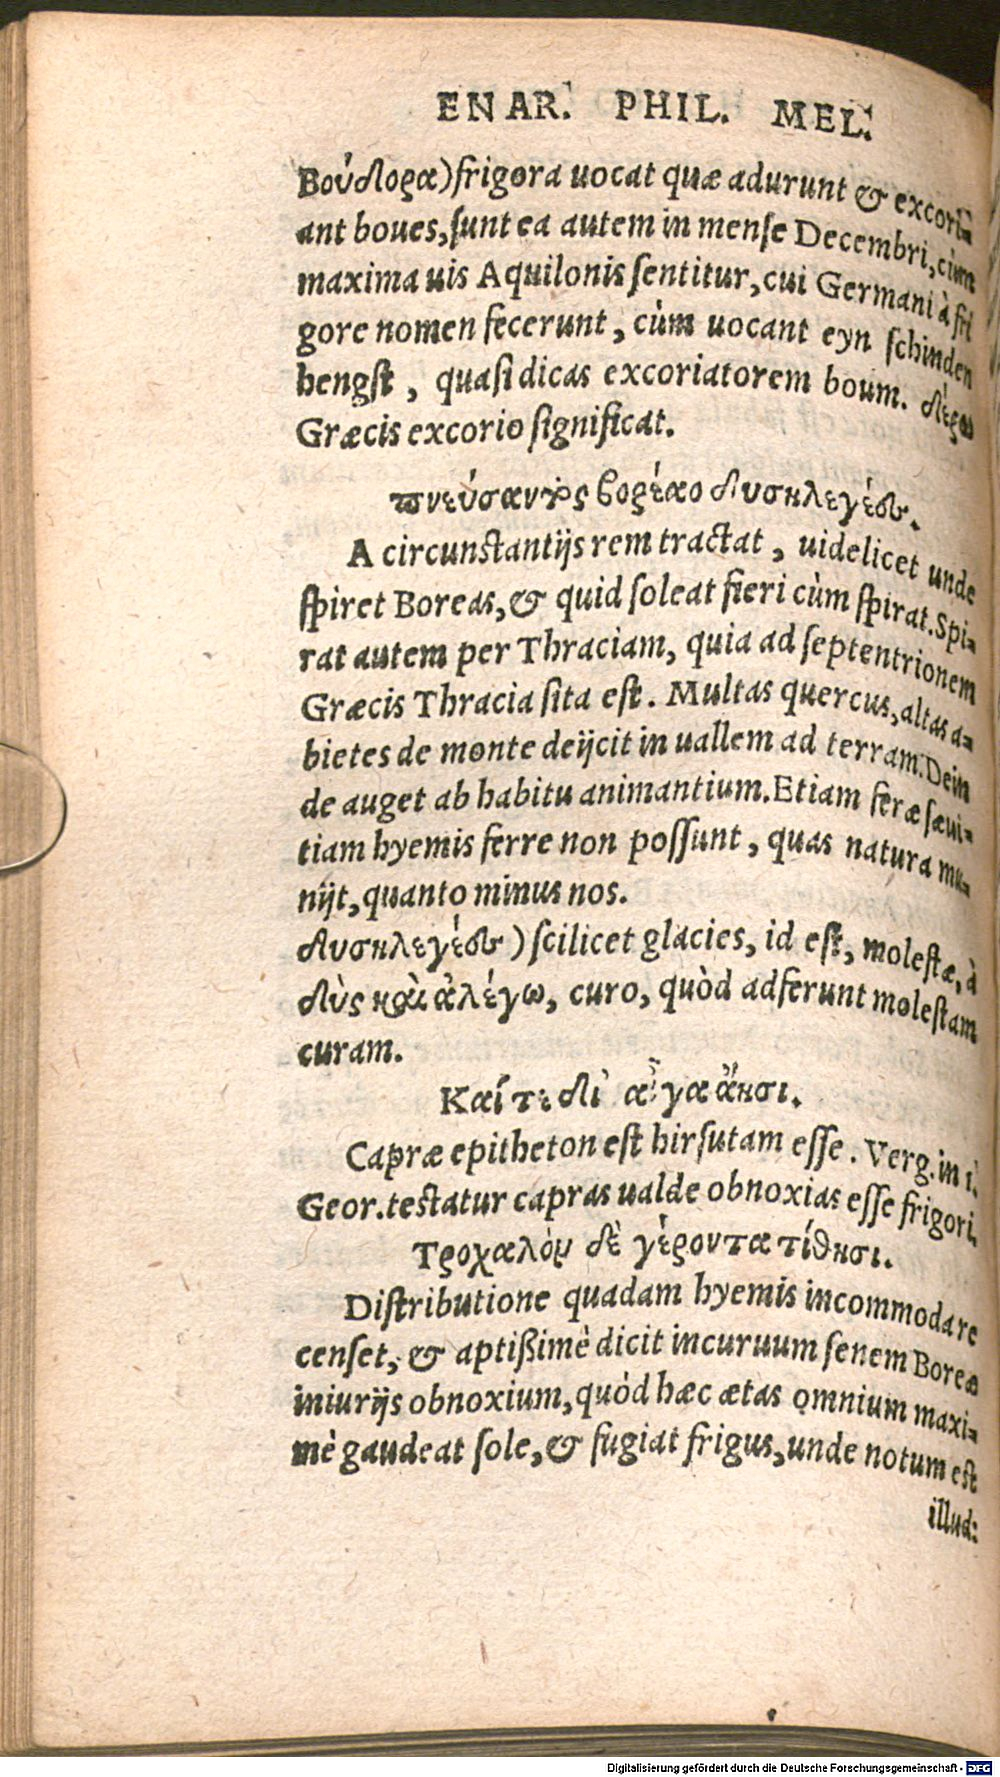 ENAR. PHIL. MEL.
Βούδορα) frigora uocat quæ adurunt & excori-
ant boues, sunt ea autem in mense Decembri, cùm
maxima uis Aquilonis sentitur, cui Germani à fri
gore nomen fecerunt, cùm uocant eyn schinden
hengst, quasi dicas excoriatorem boum. δέρω
Græcis excorio significat.
πνεύσαντος βορέαο δυσηλεγέος.
A circunstantijs rem tractat, uidelicet unde
spiret Boreas, & quid soleat fieri cùm spirat. Spi-
rat autem per Thraciam, quia ad septentrionem
Græcis Thracia sita est. Multas quercus, altas a-
bietes de monte deijcit in uallem ad terram. Dein
de auget ab habitu animantium. Etiam feræ sæui-
tiam hyemis ferre non possunt, quas natura mu-
nijt, quanto minus nos.
δυσηλεγέος) scilicet glacies, id est, molestæ, à
δὺς καὶ ἀλέγω, curo, quòd adferunt molestam
curam.
Καί τε δι' αἶγα ἄησι.
Capræ epitheton est hirsutam esse. Verg. in 1.
Geor. testatur capras ualde obnoxias esse frigori.
Τροχαλὸν δὲ γέροντα τίθησι.
Distributione quadam hyemis incommoda re
censet, & aptißimè dicit incuruum senem Boreæ
iniurijs obnoxium, quòd hæc ætas omnium maxi-
mè gaudeat sole, & fugiat frigus, unde notum est
illud:
Digitalisierung gefördert durch die Deutsche Forschungsgemeinschaft - DFG